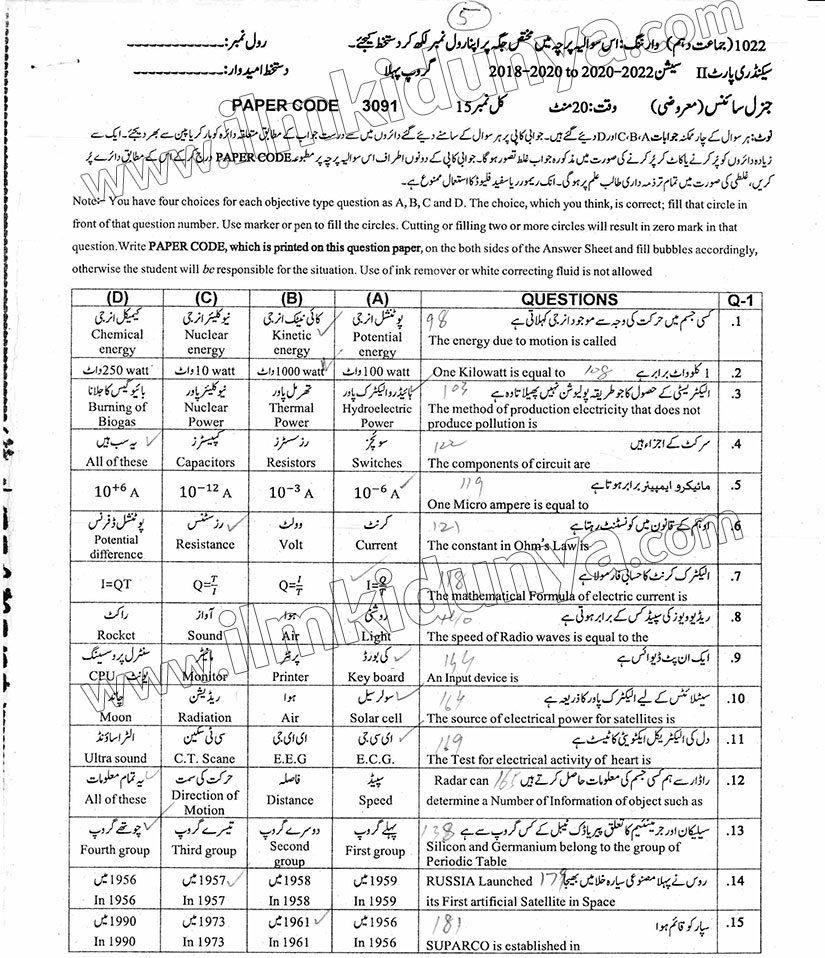 5
1022 (جماعت دہم) وارننگ: اس سوالیہ پرچہ میں مختص جگہ پر اپنا رول نمبر لکھ کر دستخط کیجئے۔ رول نمبر:
سیکنڈری پارٹ II سیشن 2018-2020 to 2020-2022 گروپ پہلا دستخط امیدوار:
جنرل سائنس (معروضی) وقت: 20 منٹ کل نمبر 15 PAPER CODE 3091
نوٹ: ہر سوال کے چار ممکنہ جوابات C، B، A اور D دیئے گئے ہیں۔ جوابی کاپی پر ہر سوال کے سامنے دیئے گئے دائروں میں سے درست جواب کے مطابق متعلقہ دائرہ کو مارکر یا پین سے بھر دیجئے۔ ایک سے
زیادہ دائروں کو پُر کرنے یا کاٹ کر پُر کرنے کی صورت میں مذکورہ جواب غلط تصور ہو گا۔ جوابی کاپی کے دونوں اطراف اس سوالیہ پرچہ پر مطبوعہ PAPER CODE درج کر کے اس کے مطابق دائرے پُر
کریں، غلطی کی صورت میں تمام تر ذمہ داری طالب علم پر ہوگی۔ انک ریموور یا سفید فلیوڈ کا استعمال ممنوع ہے۔
Note:- You have four choices for each objective type question as A, B, C and D. The choice, which you think, is correct; fill that circle in
front of that question number. Use marker or pen to fill the circles. Cutting or filling two or more circles will result in zero mark in that
question.Write PAPER CODE, which is printed on this question paper, on the both sides of the Answer Sheet and fill bubbles accordingly,
otherwise the student will be responsible for the situation. Use of ink remover or white correcting fluid is not allowed
(D) (C) (B) (A) QUESTIONS Q-1
کیمیکل انرجی نیوکلیئر انرجی کائی نیٹک انرجی پوٹینشل انرجی 98 کسی جسم میں حرکت کی وجہ سے موجود انرجی کہلاتی ہے .1
Chemical Nuclear Kinetic Potential The energy due to motion is called
energy energy energy energy
250 watt واٹ 10 watt واٹ 1000 watt واٹ 100 watt واٹ One Kilowatt is equal to 108 1 کلو واٹ برابر ہے .2
بائیو گیس کا جلانا نیوکلیئر پاور تھرمل پاور ہائیڈرو الیکٹرک پاور 103 الیکٹریسٹی کے حصول کا جو طریقہ پولیوشن نہیں پھیلاتا وہ ہے .3
Burning of Nuclear Thermal Hydroelectric The method of production electricity that does not
Biogas Power Power Power produce pollution is
یہ سب ہیں کپیسٹرز رزسٹرز سوئچز 122 سرکٹ کے اجزاء ہیں .4
All of these Capacitors Resistors Switches The components of circuit are
10⁺⁶ A 10⁻¹² A 10⁻³ A 10⁻⁶ A 119 مائیکرو ایمپیئر برابر ہوتا ہے .5
One Micro ampere is equal to
پوٹینشل ڈفرنس رزسٹنس وولٹ کرنٹ 121 اوہم کے قانون میں کونسٹنٹ رہتا ہے .6
Potential Resistance Volt Current The constant in Ohm's Law is
difference
I=QT Q=T/I Q=I/T I=Q/T 118 الیکٹرک کرنٹ کا حسابی فارمولا ہے .7
The mathematical Formula of electric current is
راکٹ آواز ہوا روشنی ریڈیو ویوز کی سپیڈ کس کے برابر ہوتی ہے .8
Rocket Sound Air Light The speed of Radio waves is equal to the
سنٹرل پروسیسنگ مانیٹر پرنٹر کی بورڈ 144 ایک ان پٹ ڈیوائس ہے .9
CPU یونٹ Monitor Printer Key board An Input device is
چاند ریڈیشن ہوا سولر سیل 164 سیٹلائٹس کے لیے الیکٹرک پاور کا ذریعہ ہے .10
Moon Radiation Air Solar cell The source of electrical power for satellites is
الٹراساؤنڈ سی ٹی سکین ای ای جی ای سی جی 169 دل کی الیکٹریکل ایکٹویٹی کا ٹیسٹ ہے .11
Ultra sound C.T. Scane E.E.G E.C.G. The Test for electrical activity of heart is
یہ تمام معلومات حرکت کی سمت فاصلہ سپیڈ Radar can 165 راڈار سے ہم کسی جسم کی معلومات حاصل کرتے ہیں .12
All of these Direction of Distance Speed determine a Number of Information of object such as
Motion
چوتھے گروپ تیسرے گروپ دوسرے گروپ پہلے گروپ 138 سیلیکان اور جرمینیئم کا تعلق پیریاڈک ٹیبل کے کس گروپ سے ہے .13
Fourth group Third group Second First group Silicon and Germanium belong to the group of
group Periodic Table
1956 میں 1957 میں 1958 میں 1959 میں RUSSIA Launched 179 روس نے پہلا مصنوعی سیارہ خلا میں بھیجا .14
In 1956 In 1957 In 1958 In 1959 its First artificial Satellite in Space
1990 میں 1973 میں 1961 میں 1956 میں 181 سپارکو قائم ہوا .15
In 1990 In 1973 In 1961 In 1956 SUPARCO is established in
www.ilmkidunya.com
www.ilmkidunya.com
www.ilmkidunya.com